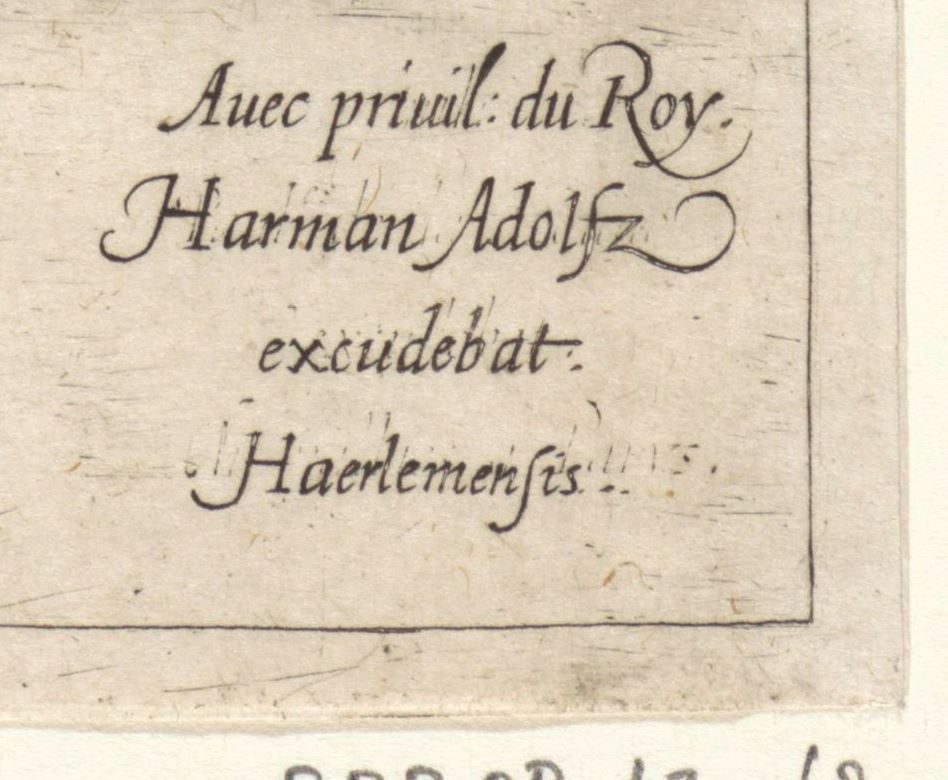 Auec priuil: du Roy.
Harman Adolfz
excudebat.
Haerlemenſis.